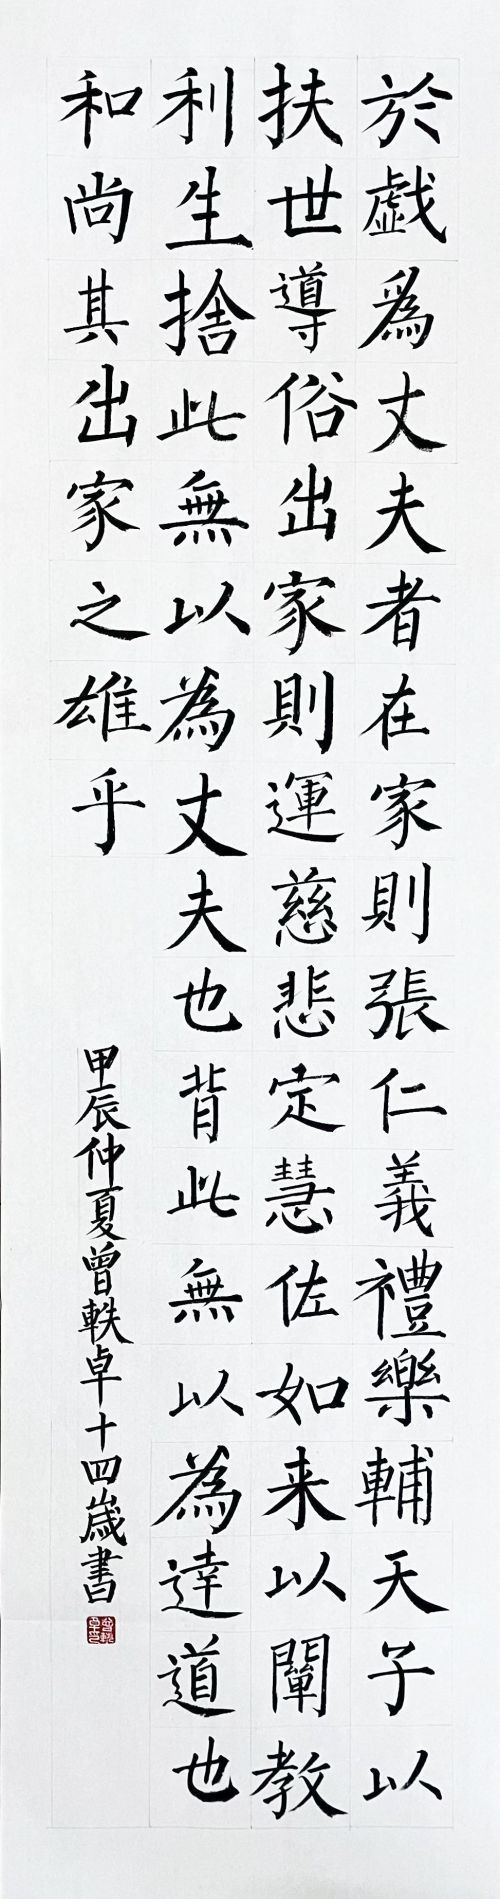 於戯為丈夫者在家則張仁義禮樂輔天子以
扶世導俗出家則運慈悲定慧佐如来以闡教
利生捨此無以為丈夫也背此無以為達道也
和尚其出家之雄乎
甲辰仲夏曾軼卓十四歲書